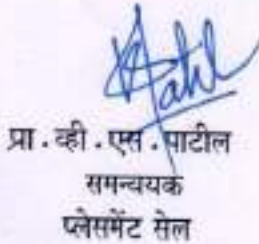 प्रा.व्ही.एस.पाटील
समन्वयक
प्लेसमेंट सेल